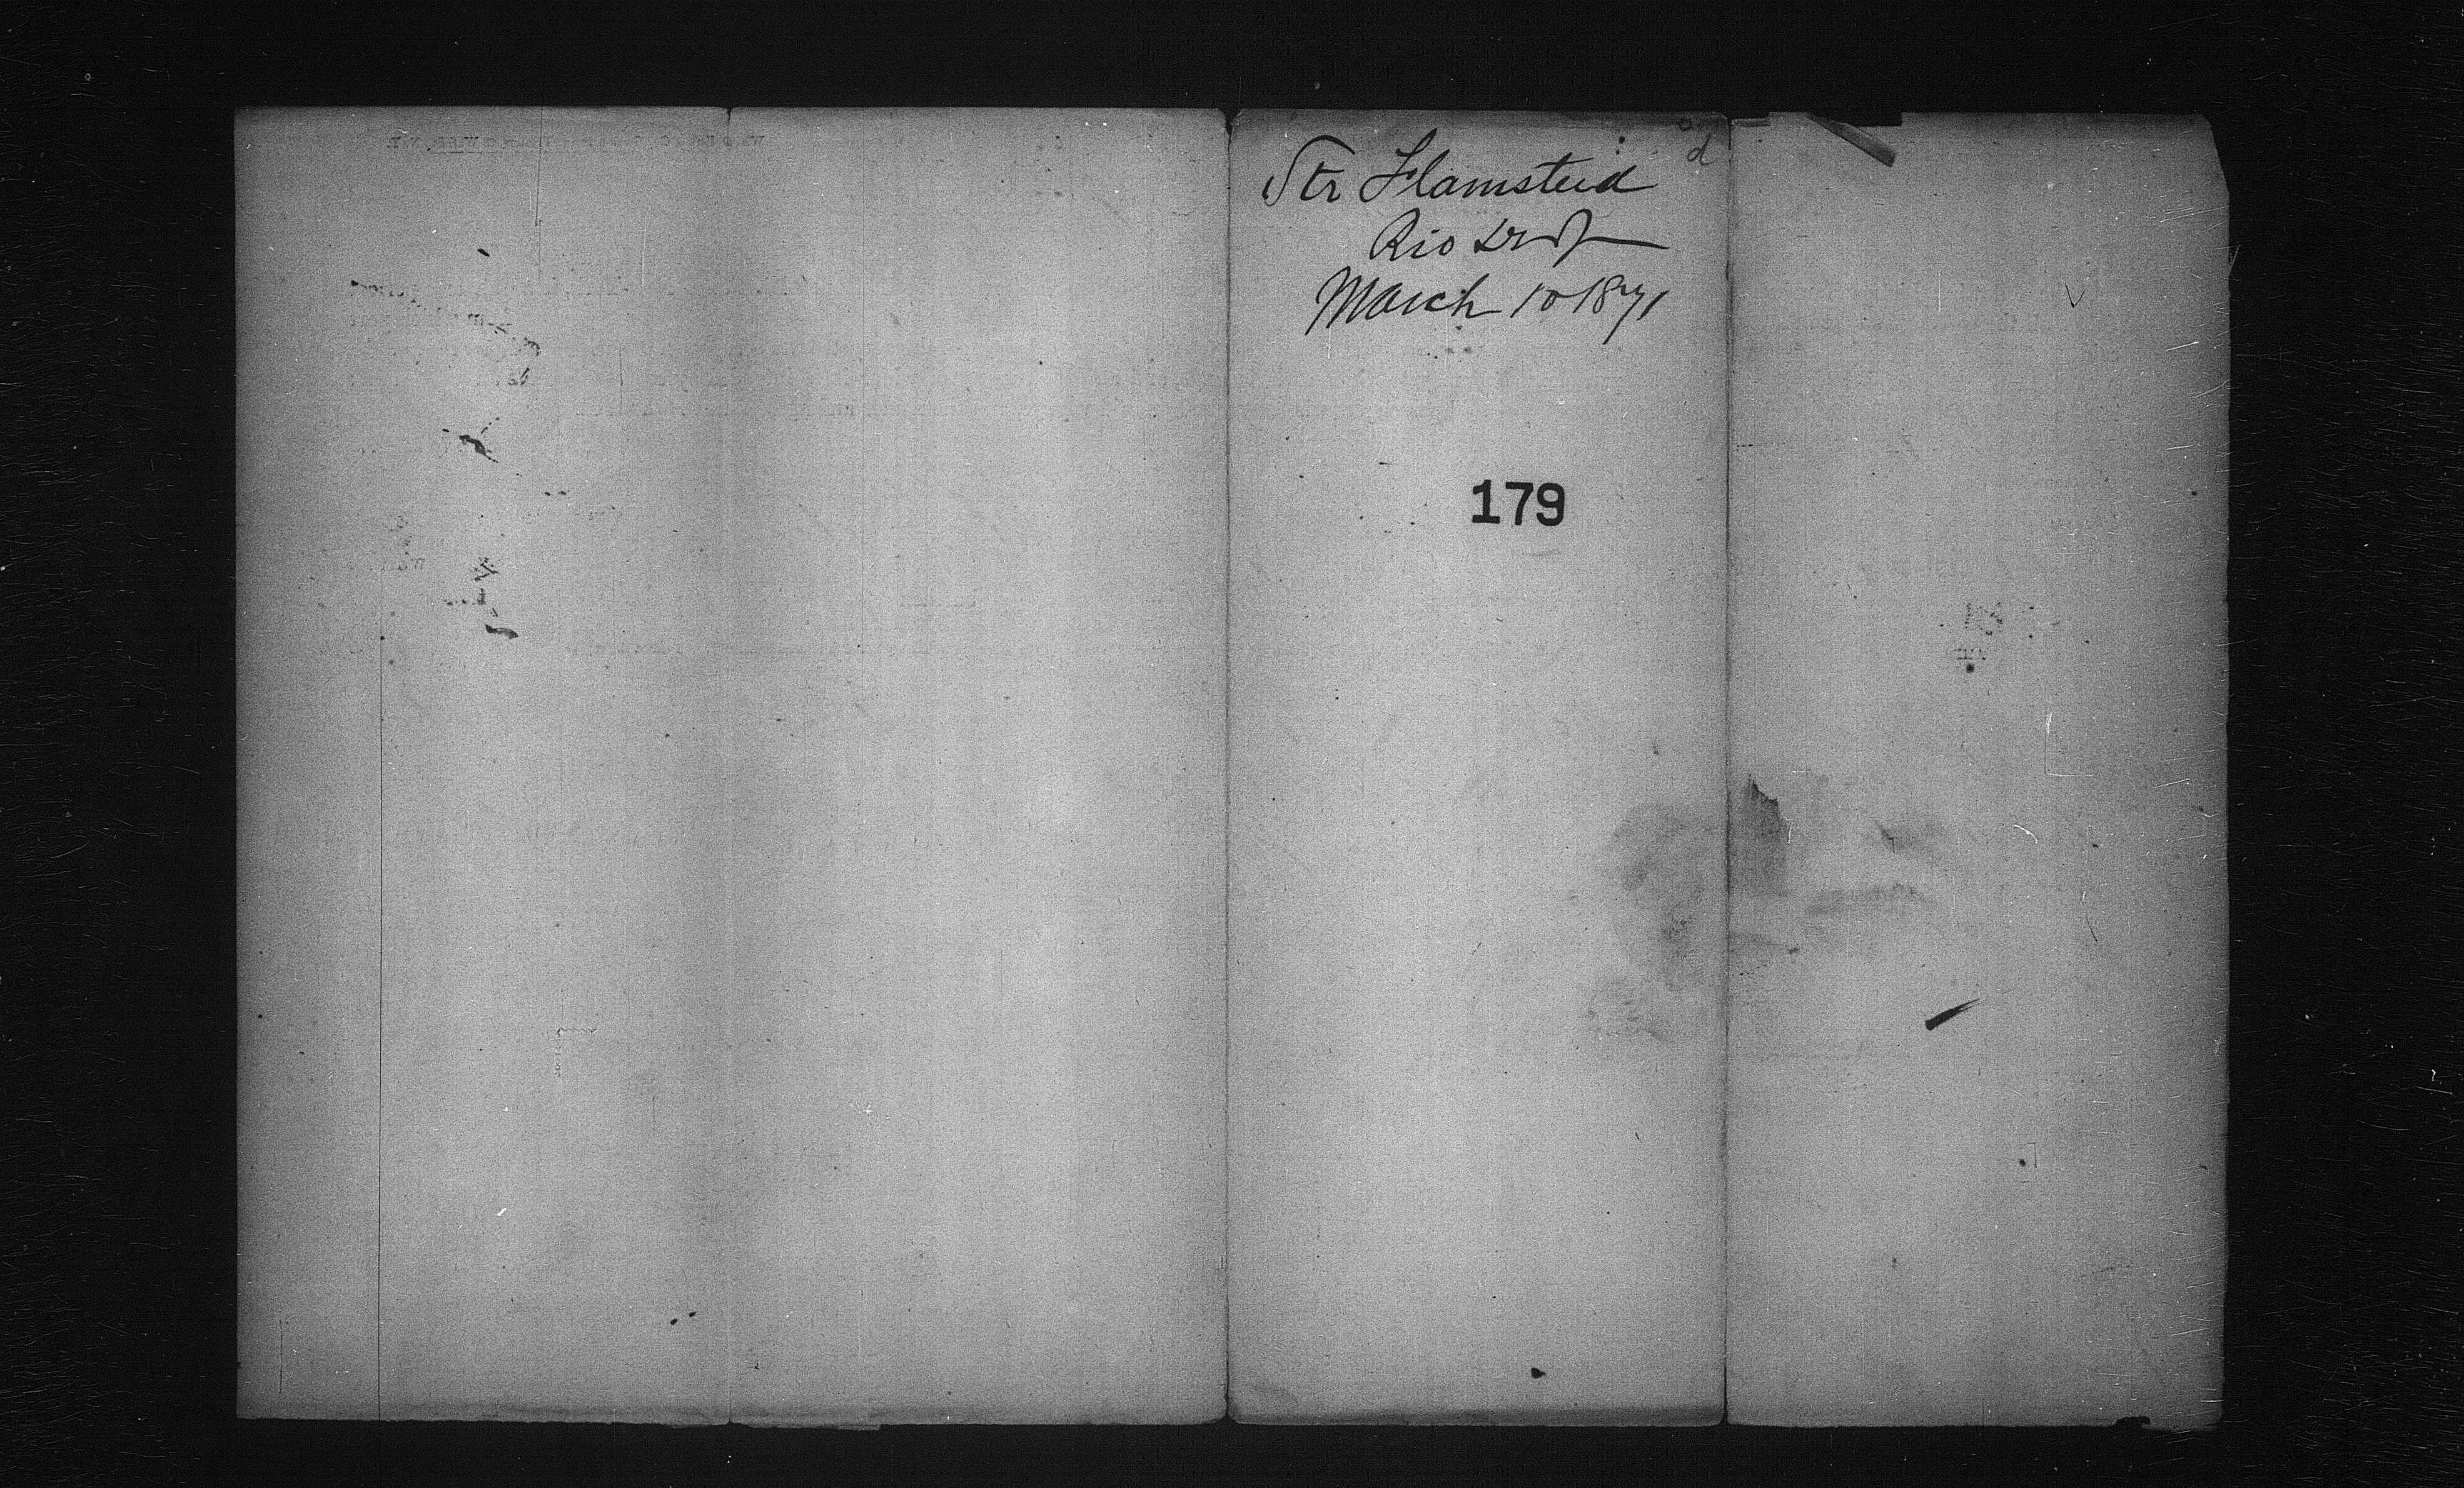 Str Flamsteed
Rio
March 10 1871
179